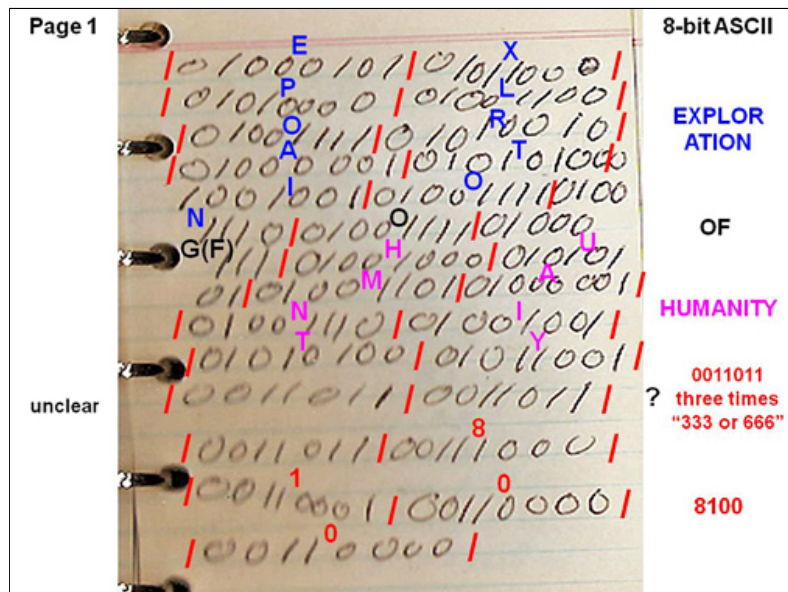 Page 1
8-bit ASCII
E X
/ 01000101 / 01011000 /
P L
/ 01010000 / 01001100 /
O R
/ 01001111 / 01010010 /
A T
/ 01000001 / 01010100 / 0
I O
1001001 / 01001111 / 0100
N O
1110 / 01001111 / 01000
G(F) H U
111 / 01001000 / 010101
M A
01 / 01001101 / 01000001 /
N I
/ 01001110 / 01001001 /
T Y
/ 01010100 / 01011001 /
/ 0011011 / 0011011 / ?
8
/ 0011011 / 00111000 /
1 0
/ 00110001 / 00110000 /
0
/ 00110000 /
unclear
EXPLOR
ATION
OF
HUMANITY
0011011
three times
“333 or 666”
8100